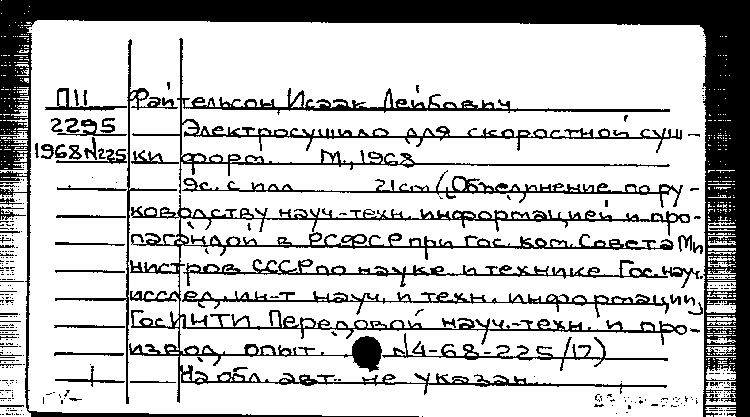 П11 Файтельсон, Исаак Лейбович
2295 Электросушило для скоростной суш-
1968 N225 ки форм. М., 1968
9с. с илл 21см (Объединение по ру-
ководству науч.-техн. информацией и про-
пагандой в РСФСР при Гос. ком. Совета Ми
нистров СССР по науке и технике Гос. науч.
исслед. ин-т науч. и техн. информации,
ГосИНТИ. Передовой науч.-техн. и про-
извод. опыт. N4-68-225/17)
На обл. авт. не указан